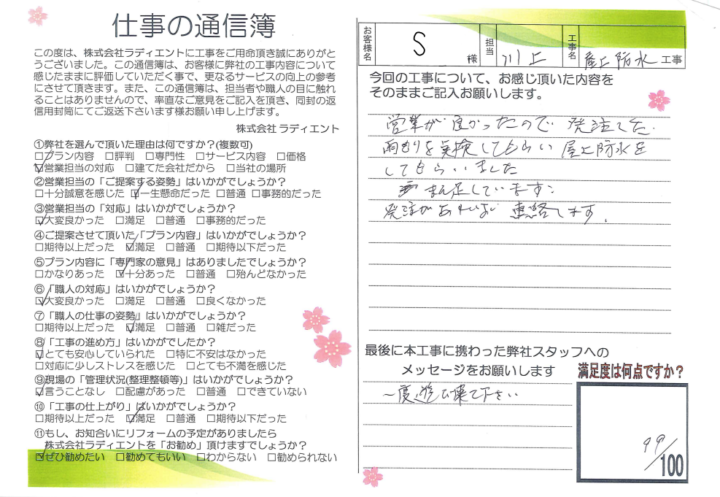 仕事の通信簿
この度は、株式会社ラディエントに工事をご用命頂き誠にありがと
うございました。この通信簿は、お客様に弊社の工事内容について
感じたままに評価していただく事で、更なるサービスの向上の参考
にさせて頂きます。また、この通信簿は、担当者や職人の目に触れ
ることはありませんので、率直なご意見をご記入を頂き、同封の返
信用封筒にてご返送下さいます様お願い申し上げます。
株式会社 ラディエント
①弊社を選んで頂いた理由は何ですか?(複数可)
□プラン内容 □評判 □専門性 □サービス内容 □価格
☑営業担当の対応 □建てた会社だから □当社の場所
②営業担当の「ご提案する姿勢」はいかがでしょうか?
□十分誠意を感じた ☑一生懸命だった □普通 □事務的だった
③営業担当の「対応」はいかがでしょうか?
☑大変良かった □満足 □普通 □事務的だった
④ご提案させて頂いた「プラン内容」はいかがでしょうか?
□期待以上だった ☑満足 □普通 □期待以下だった
⑤プラン内容に「専門家の意見」はありましたでしょうか?
□かなりあった ☑十分あった □普通 □殆んどなかった
⑥「職人の対応」はいかがでしょうか?
☑大変良かった □満足 □普通 □良くなかった
⑦「職人の仕事の姿勢」はいかがでしょうか?
□期待以上だった ☑満足 □普通 □雑だった
⑧「工事の進め方」はいかがでしたか?
☑とても安心していられた □特に不安はなかった
□対応に少しストレスを感じた □とても不満を感じた
⑨現場の「管理状況(整理整頓等)」はいかがでしょうか?
☑言うことなし □配慮があった □普通 □できていない
⑩「工事の仕上がり」はいかがでしょうか?
□期待以上だった ☑満足 □普通 □期待以下だった
⑪もし、お知合いにリフォームの予定がありましたら
株式会社ラディエントを「お勧め」頂けますでしょうか?
☑ぜひ勧めたい □勧めてもいい □わからない □勧められない
お客様名 S 様 担当 川上 工事名 屋上防水 工事
今回の工事について、お感じ頂いた内容を
そのままご記入お願いします。
営業が良かったので 発注した
雨もりを点検してもらい 屋上防水を
してもらいました
まん足しています。
発注があれば 連絡します。
最後に本工事に携わった弊社スタッフへの
メッセージをお願いします
一度遊び来て下さい
満足度は何点ですか?
99/100